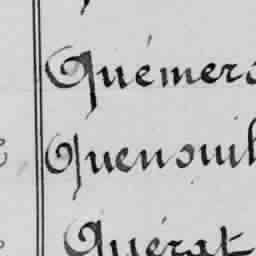 Quémer
Quenouil
Quérat